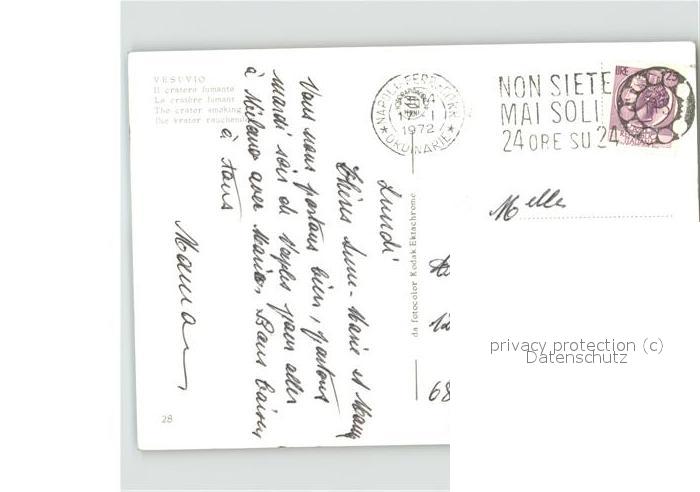 VESUVIO
Il cratere fumante
Le cratère fumant
The crater smoking
Die krater rauchende
NAPOLI FERR. CORR.
1972
ORDINARIE
NON SIETE
MAI SOLI
24 ORE SU 24
LIRE 25
Lundi
Chères Anne-Marie et Many
Vous nous partons bien, partons
mardi soir de Naples pour aller
à Milano avec Maria. Bons baisers
à tous
Maman
Melles
da fotocolor Kodak Ektachrome
12
68
28
privacy protection (c)
Datenschutz